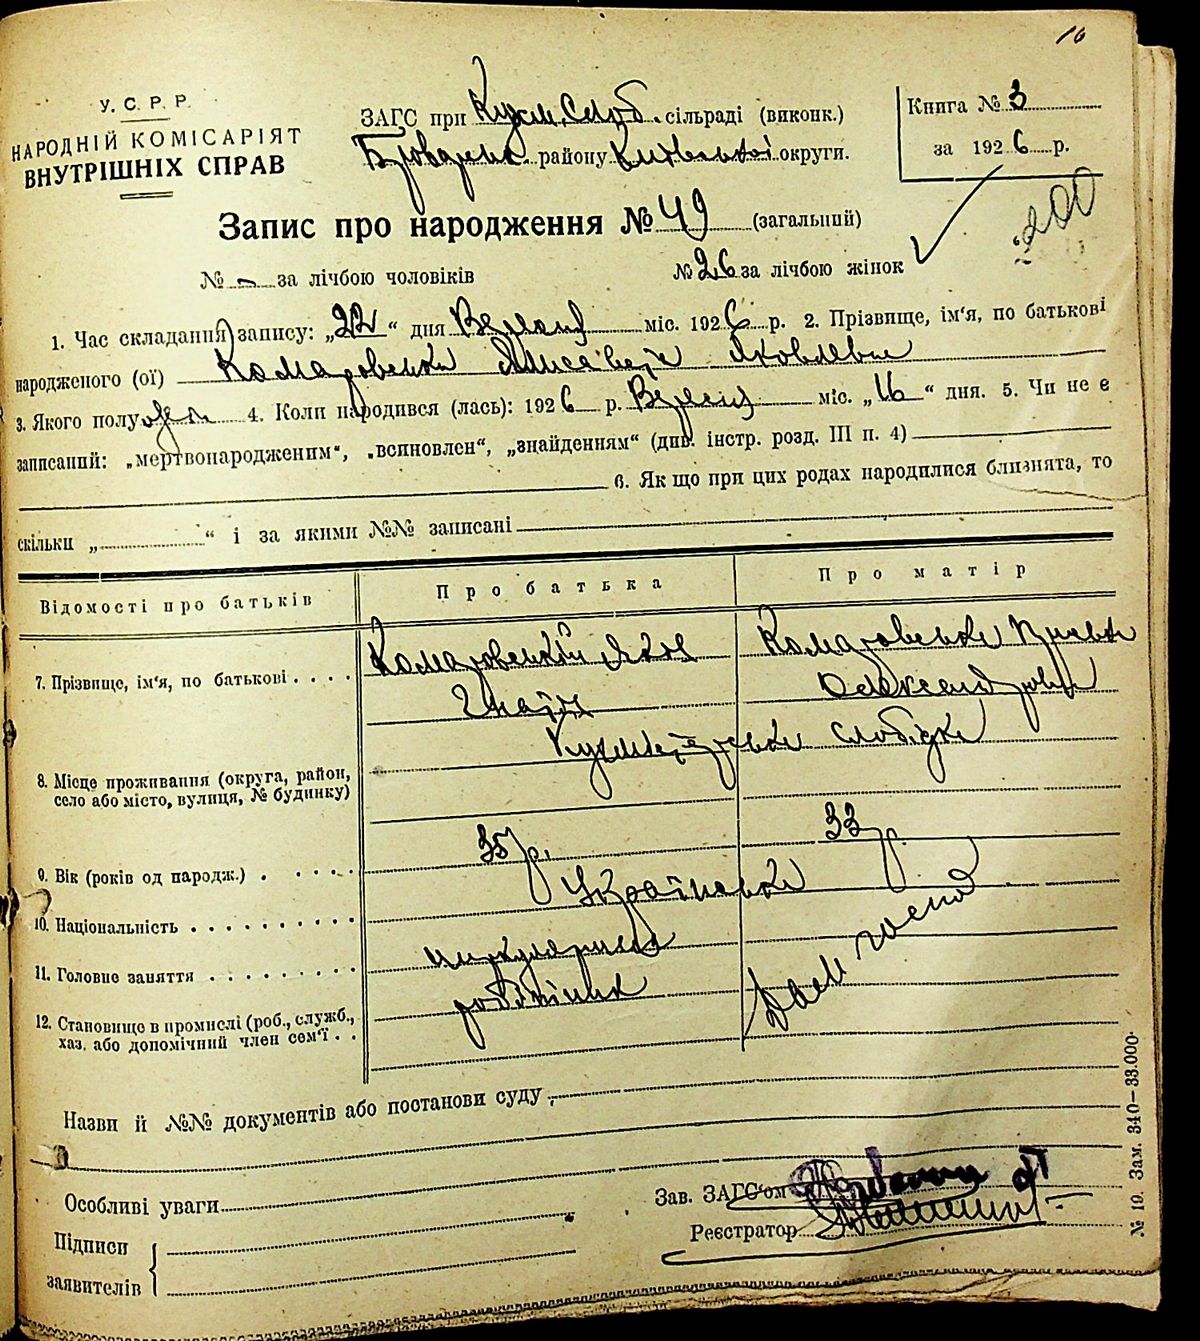 10
У. С. Р. Р.
НАРОДНІЙ КОМІСАРІЯТ
ВНУТРІШНІХ СПРАВ
ЗАГС при Кузм. Слоб. сільраді (виконк.)
Броварськ. району Київської округи.
Книга № 3
за 1926 р.
200
Запис про народження № 49 (загальний)
№ - за лічбою чоловіків № 26 за лічбою жінок
1. Час складання запису: „22“ дня Вересня міс. 1926 р. 2. Прізвище, ім'я, по батькові
народженого (ої) Комаровська Яковлевна
3. Якого полу жін. 4. Коли народився (лась): 1926 р. Вересня міс. „16“ дня. 5. Чи не є
записаний: „мертвонародженим“, „всиновлен“, „знайденням“ (див. інстр. розд. III п. 4)
6. Якщо при цих родах народилися близнята, то
скільки „ “ і за якими №№ записані
Відомості про батьків Про батька Про матір
7. Прізвище, ім'я, по батькові . . . . Комаровський Яков Комаровська
Гнатів Олександровн
Кузметрська слобідка
8. Місце проживання (округа, район,
село або місто, вулиця, № будинку)
9. Вік (років од народж.) . . . . . 35 р. 33 р.
10. Національність . . . . . . . . . Українська
11. Головне заняття . . . . . . . . .
робітник
12. Становище в промислі (роб., служб.,
хаз. або допомічний член сем'ї . .
Назви й №№ документів або постанови суду
Особливі уваги
Зав. ЗАГС'ом
Підписи
заявителів
Реєстратор
№ 19. Зам. 340—33.000